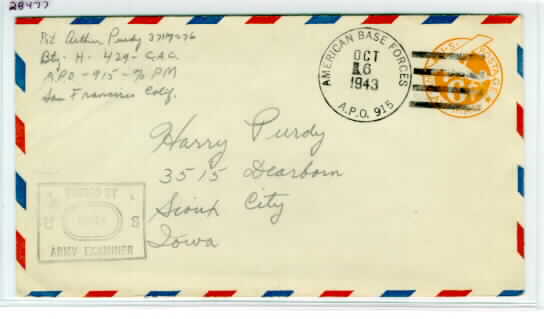 28477
Pvt Arthur Purdy
Bty - H - 429 - C.A.C.
A.P.O - 915 - % PM
San Francisco Calif.
AMERICAN BASE FORCES
OCT
16
1943
A.P.O. 915
U.S. POSTAGE
6¢
Harry Purdy
3515 Dearborn
Sioux City
Iowa
PASSED BY
U S
ARMY EXAMINER